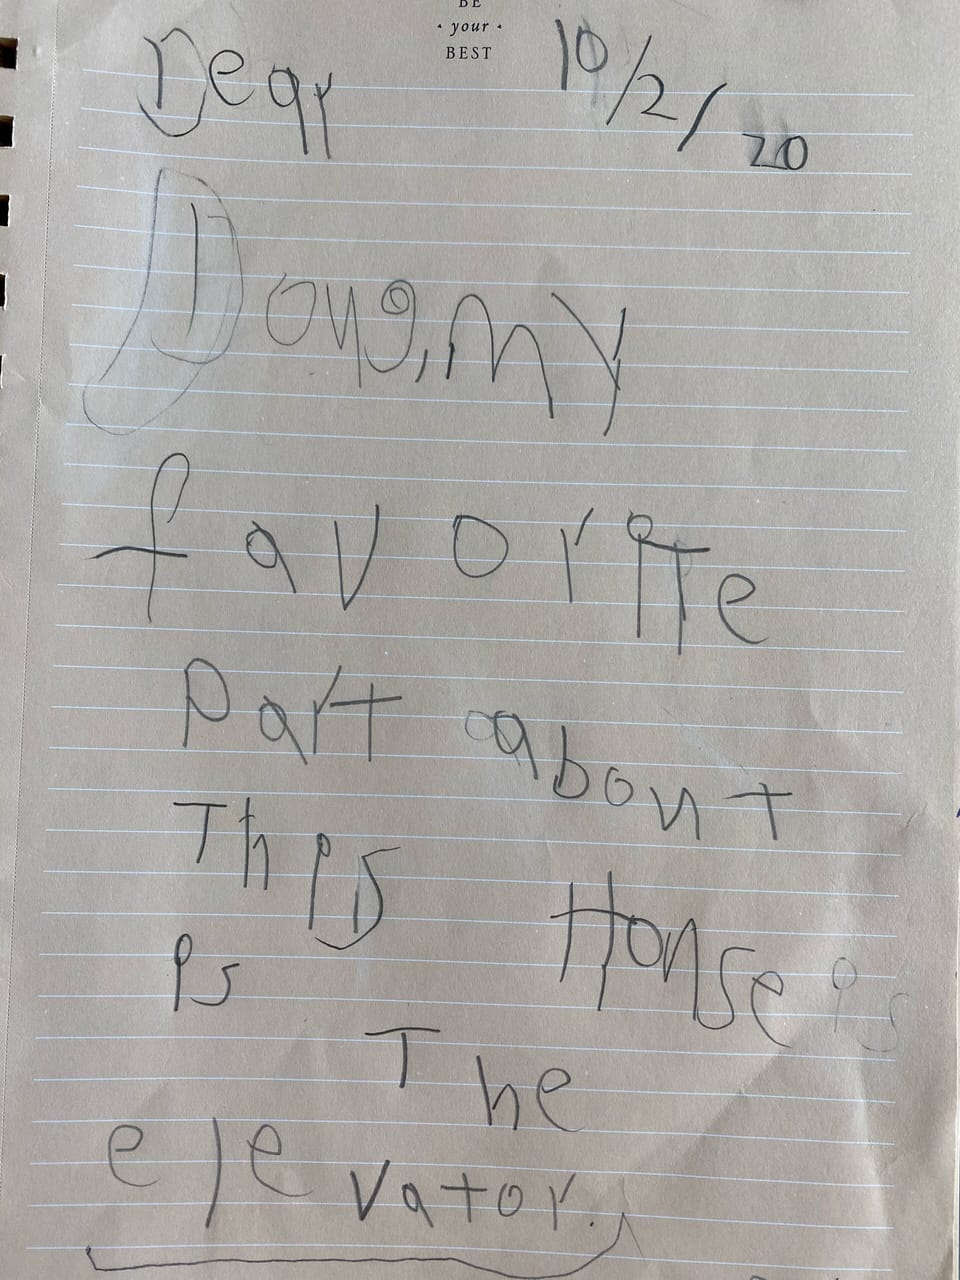 BE
· your ·
BEST
Dear 10/2/20
Doug, my
favorite
part about
This House is
is
The
elevator.